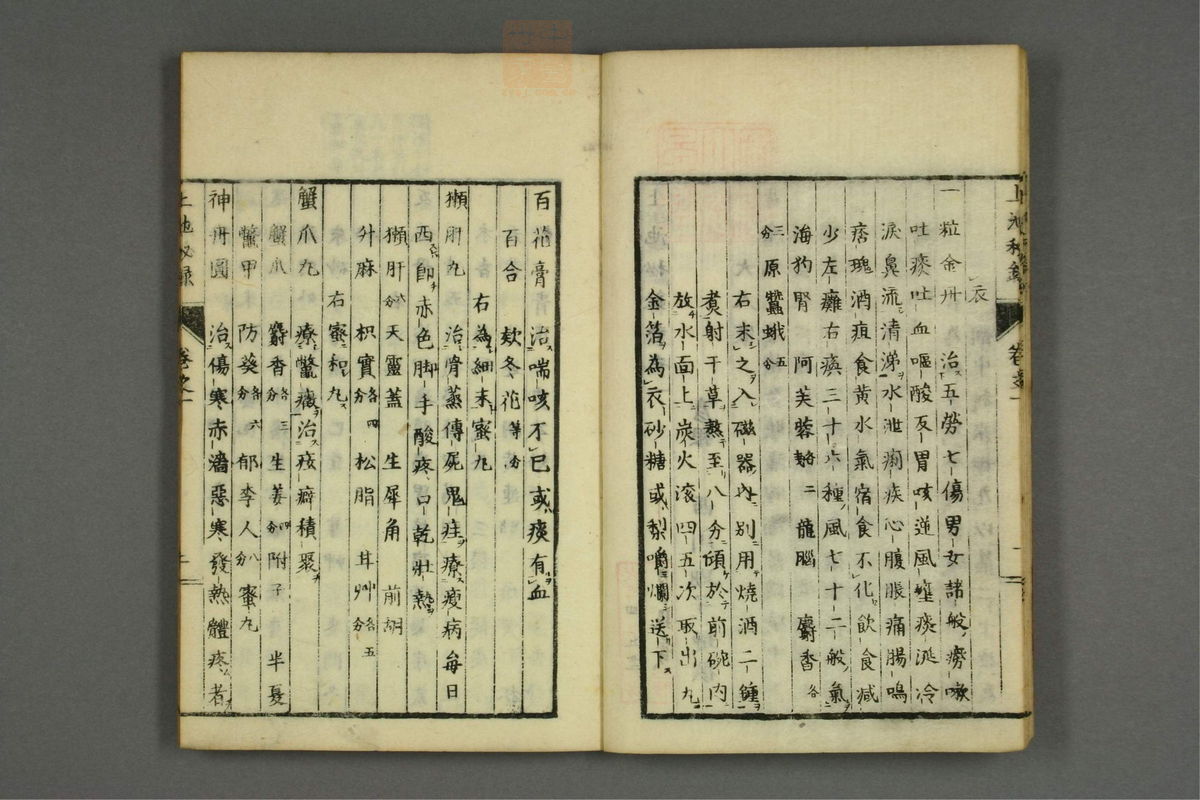 一粒金丹 治五勞七傷男女諸般癆嗽
吐痰吐血嘔酸反胃咳逆風壅痰涎冷
淚鼻流清涕水泄痢疾心腹脹痛腸鳴
痞塊酒疸食黄水氣宿食不化飲食減
少左癱右瘓三十六種風七十二般氣
海狗腎 阿芙蓉 龍腦 麝香各
三分 原蠶蛾五分
右末之入磁器内別用燒酒二鍾
煑射干草熬至八分傾於前碗内
放水面上炭火滚四五次取出九
金箔為衣砂糖或梨嚼爛送下
上池秘録 卷之一
百花膏 治喘咳不已或痰有血
百合 欵冬花等分
右為細末蜜丸
獺肝丸 治骨蒸傳屍鬼疰療瘦病毎日
西即赤色脚手酸疼口乾壯熱
獺肝六分 天靈蓋 生犀角 前胡
升麻 枳實各四分 松脂 甘艸各五分
右蜜和丸
蟹爪丸 療鱉癥治痃癖積聚
蟹爪 麝香各三分 生姜四分 附子 半夏
鱉甲 防葵各六分 郁李人八分 蜜丸
神丹圓 治傷寒赤濇惡寒發熱體疼者
上池秘録 卷之一